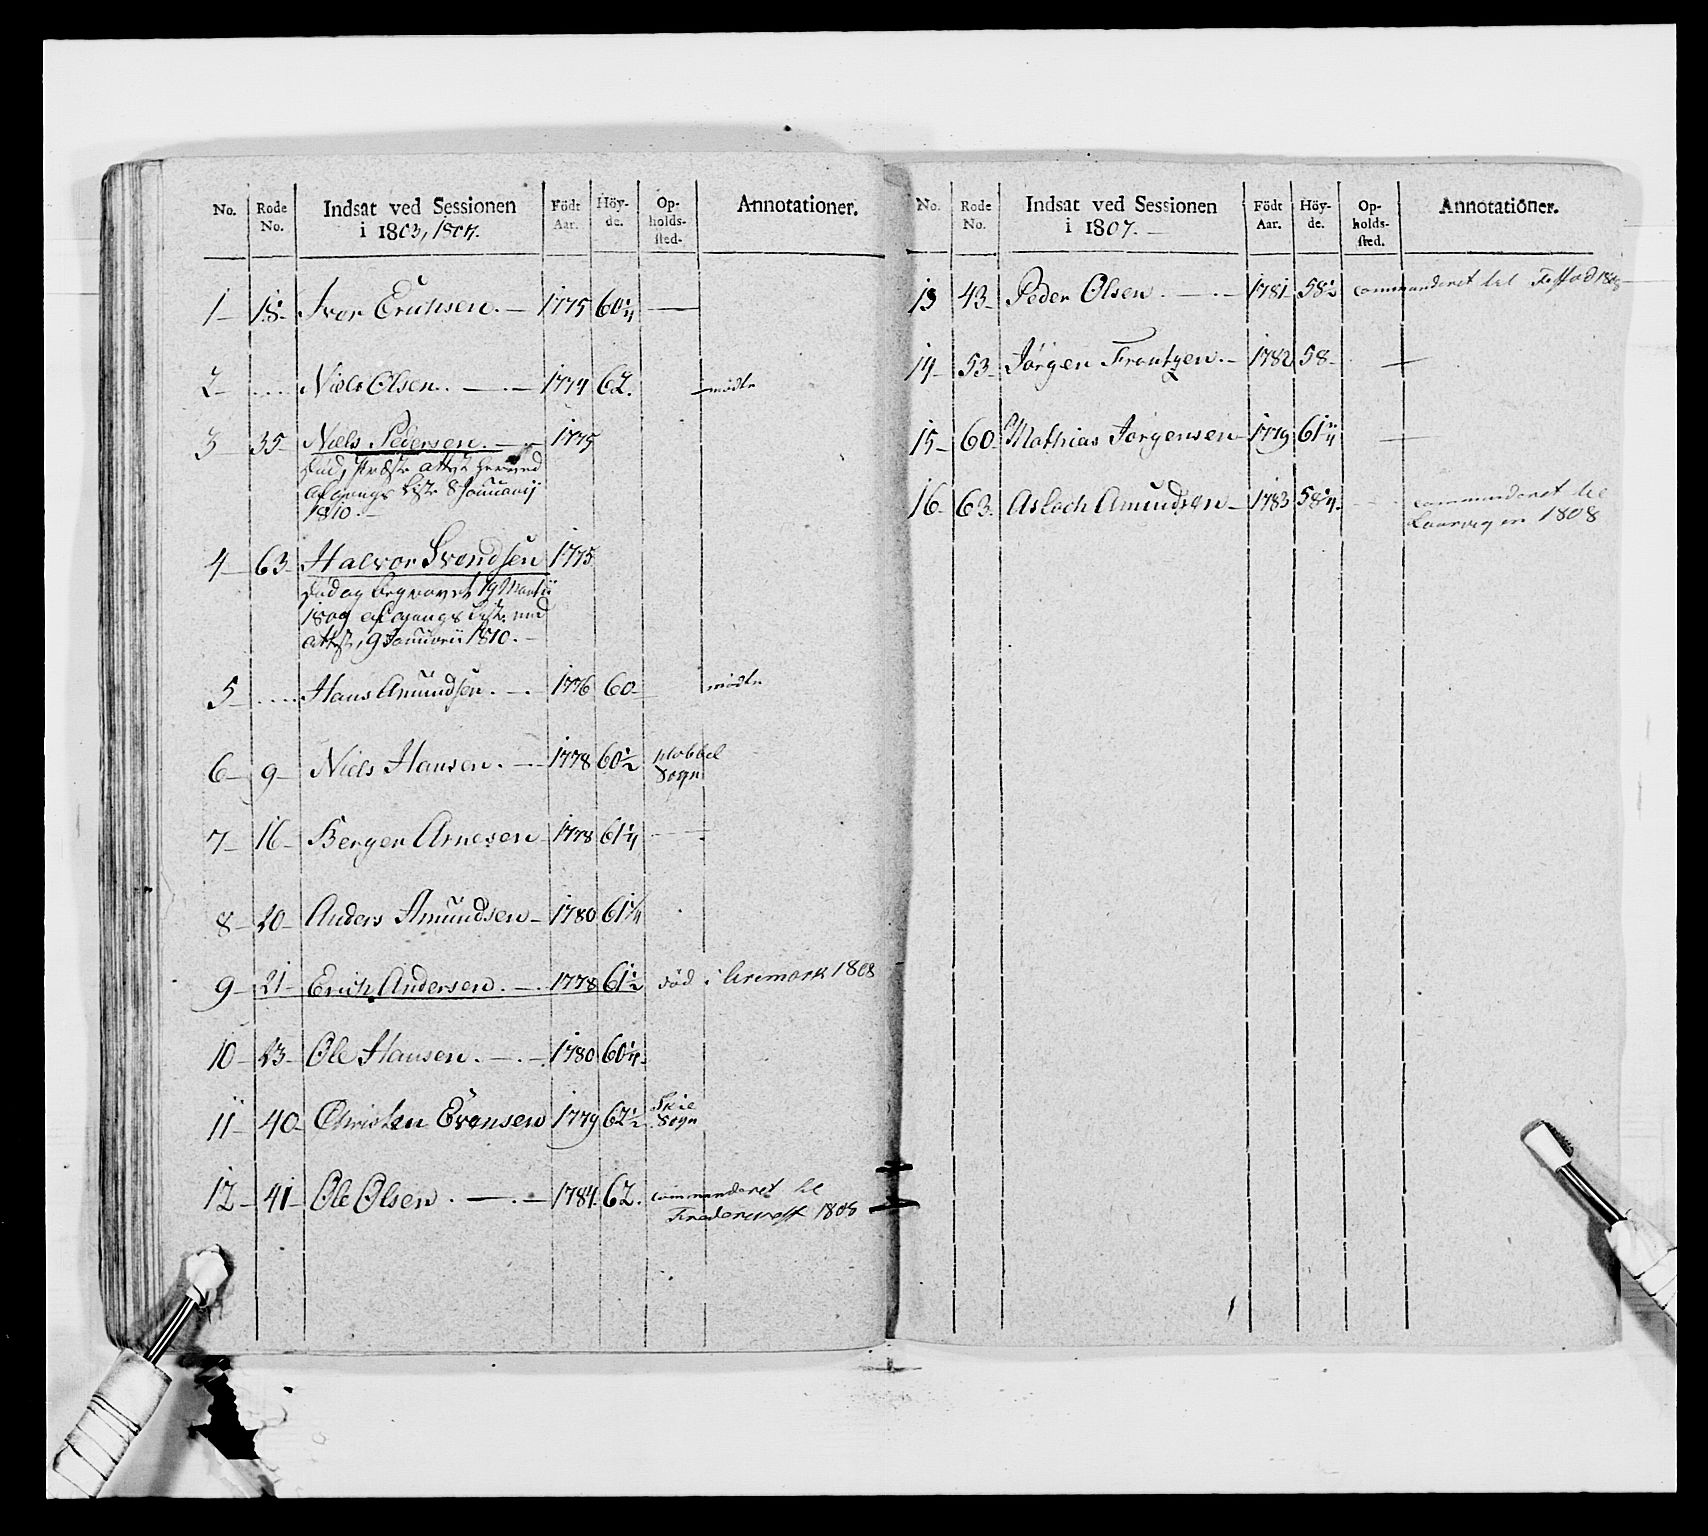 No. Rode No. Indsat ved Sessionen i 1803, 1804. Födt Aar. Höyde. Opholds-sted. Annotationer.
1 18 Iver Erichsen. 1775 60 1/4
2 .... Niels Olsen. 1774 62. mödte
3 35 Niels Pedersen. 1775
Död, Præste attest
afgangs Liste 8 Januarij
1810.
4 63 Halvor Svendsen 1775
Död og begravet 19 Martii
1809 afgangs Liste med
attest 9 Januarii 1810.
5 .... Hans Amundsen. 1776 60 mödte
6 9 Niels Hansen. 1778 60 1/2 Sogn
7 16 Berger Arnesen 1778 61 1/4
8 20 Anders Amundsen 1780 61 1/4
9 21 Erich Andersen. 1778 61 1/2 död i Aremark 1808
10 23 Ole Hansen. 1780 60 1/4
11 40 Christen Evensen 1779 62 1/2 Skie Sogn
12 41 Ole Olsen. 1784 62. commanderet til
1808
No. Rode No. Indsat ved Sessionen i 1807. Födt Aar. Höyde. Opholds-sted. Annotationer.
13 43 Peder Olsen. 1781 58 1/2 commanderet til 1808
14 53 Jörgen Frantzen. 1782 58
15 60 Mathias Jörgensen 1779 61 1/4
16 63 Asloch Amundsen 1783 58 1/4 commanderet til
Laurvigen 1808